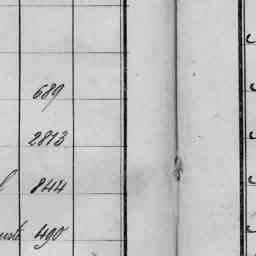 689
2813
844
490